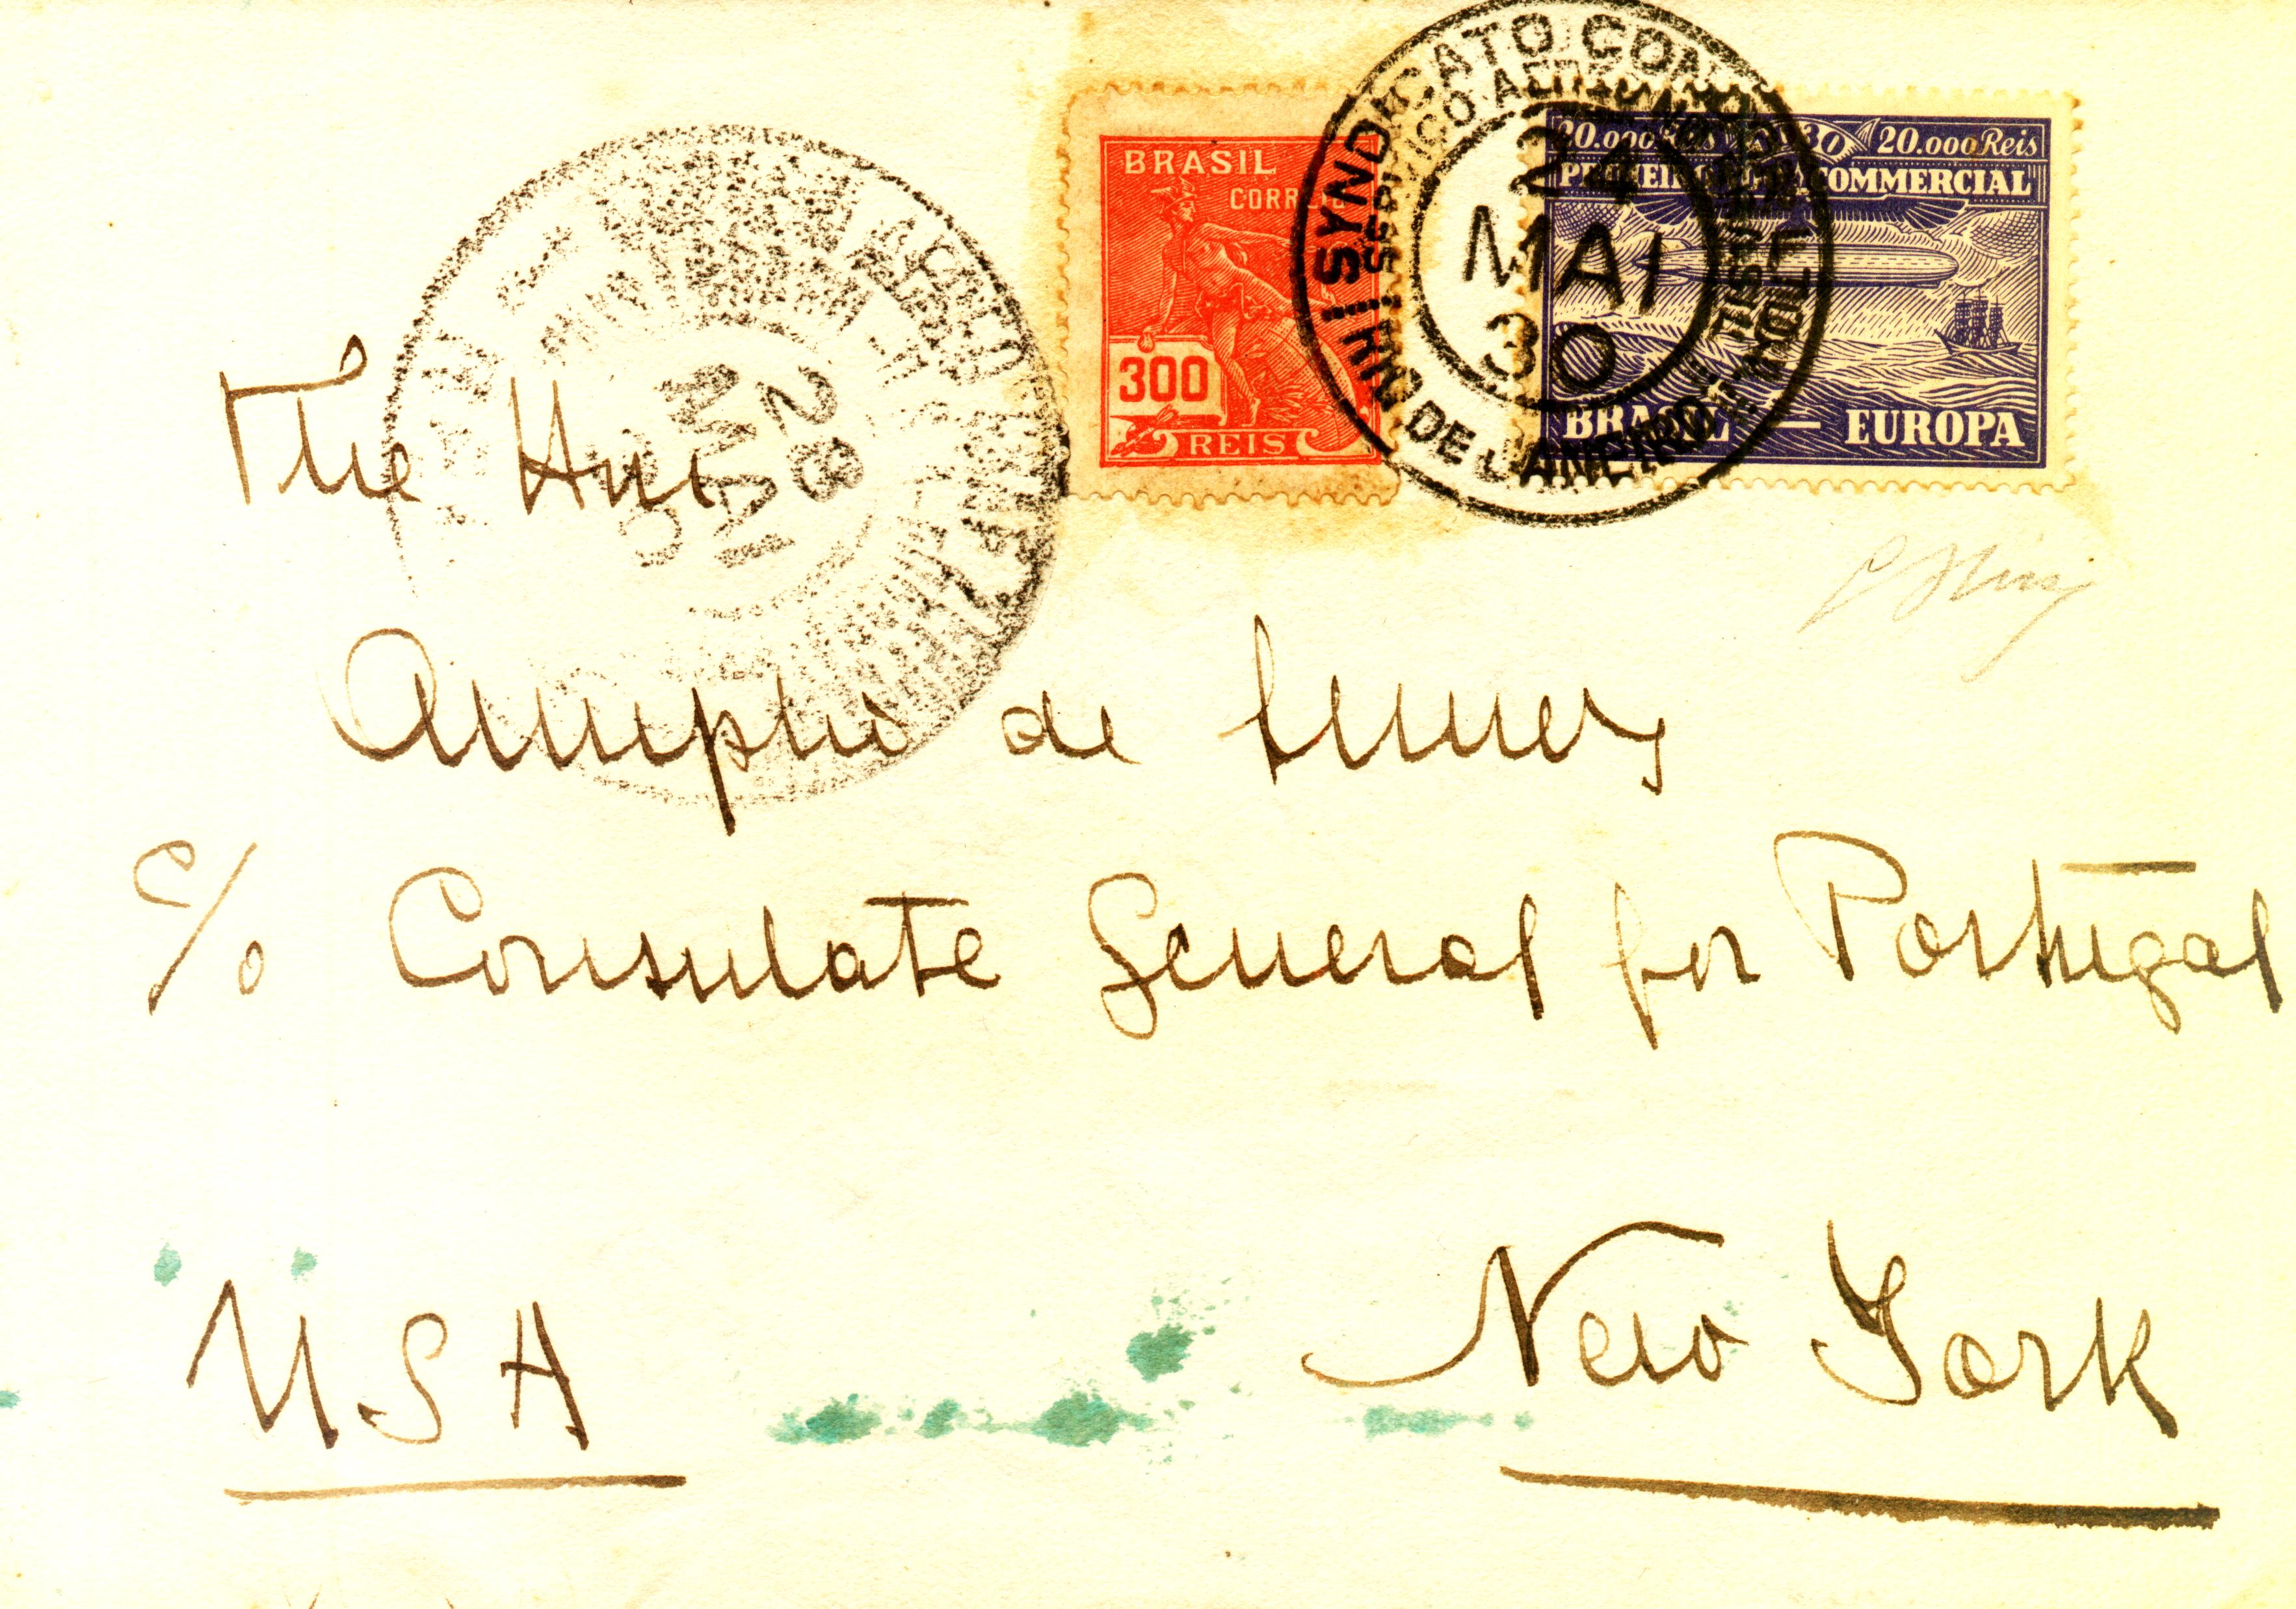 BRASIL
CORREIO
300
REIS
SYNDICATO CONDOR
SERVIÇO AEREO
RIO DE JANEIRO
24
MAI
30
20.000 Reis 1930 20.000 Reis
COMMERCIAL
BRASIL — EUROPA
28
MAI
The Hon
de
c/o Consulate General for Portugal
USA
New York